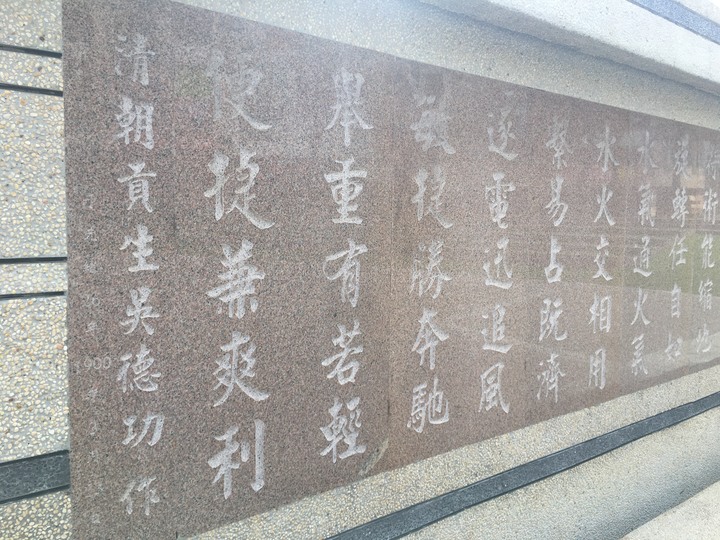 術能縮地
任自如
水氣通火氣
水火交相用
易占既濟
逐電迅追風
敏捷勝奔馳
舉重有若輕
便捷兼爽利
清朝貢生吳德功 作
1900年